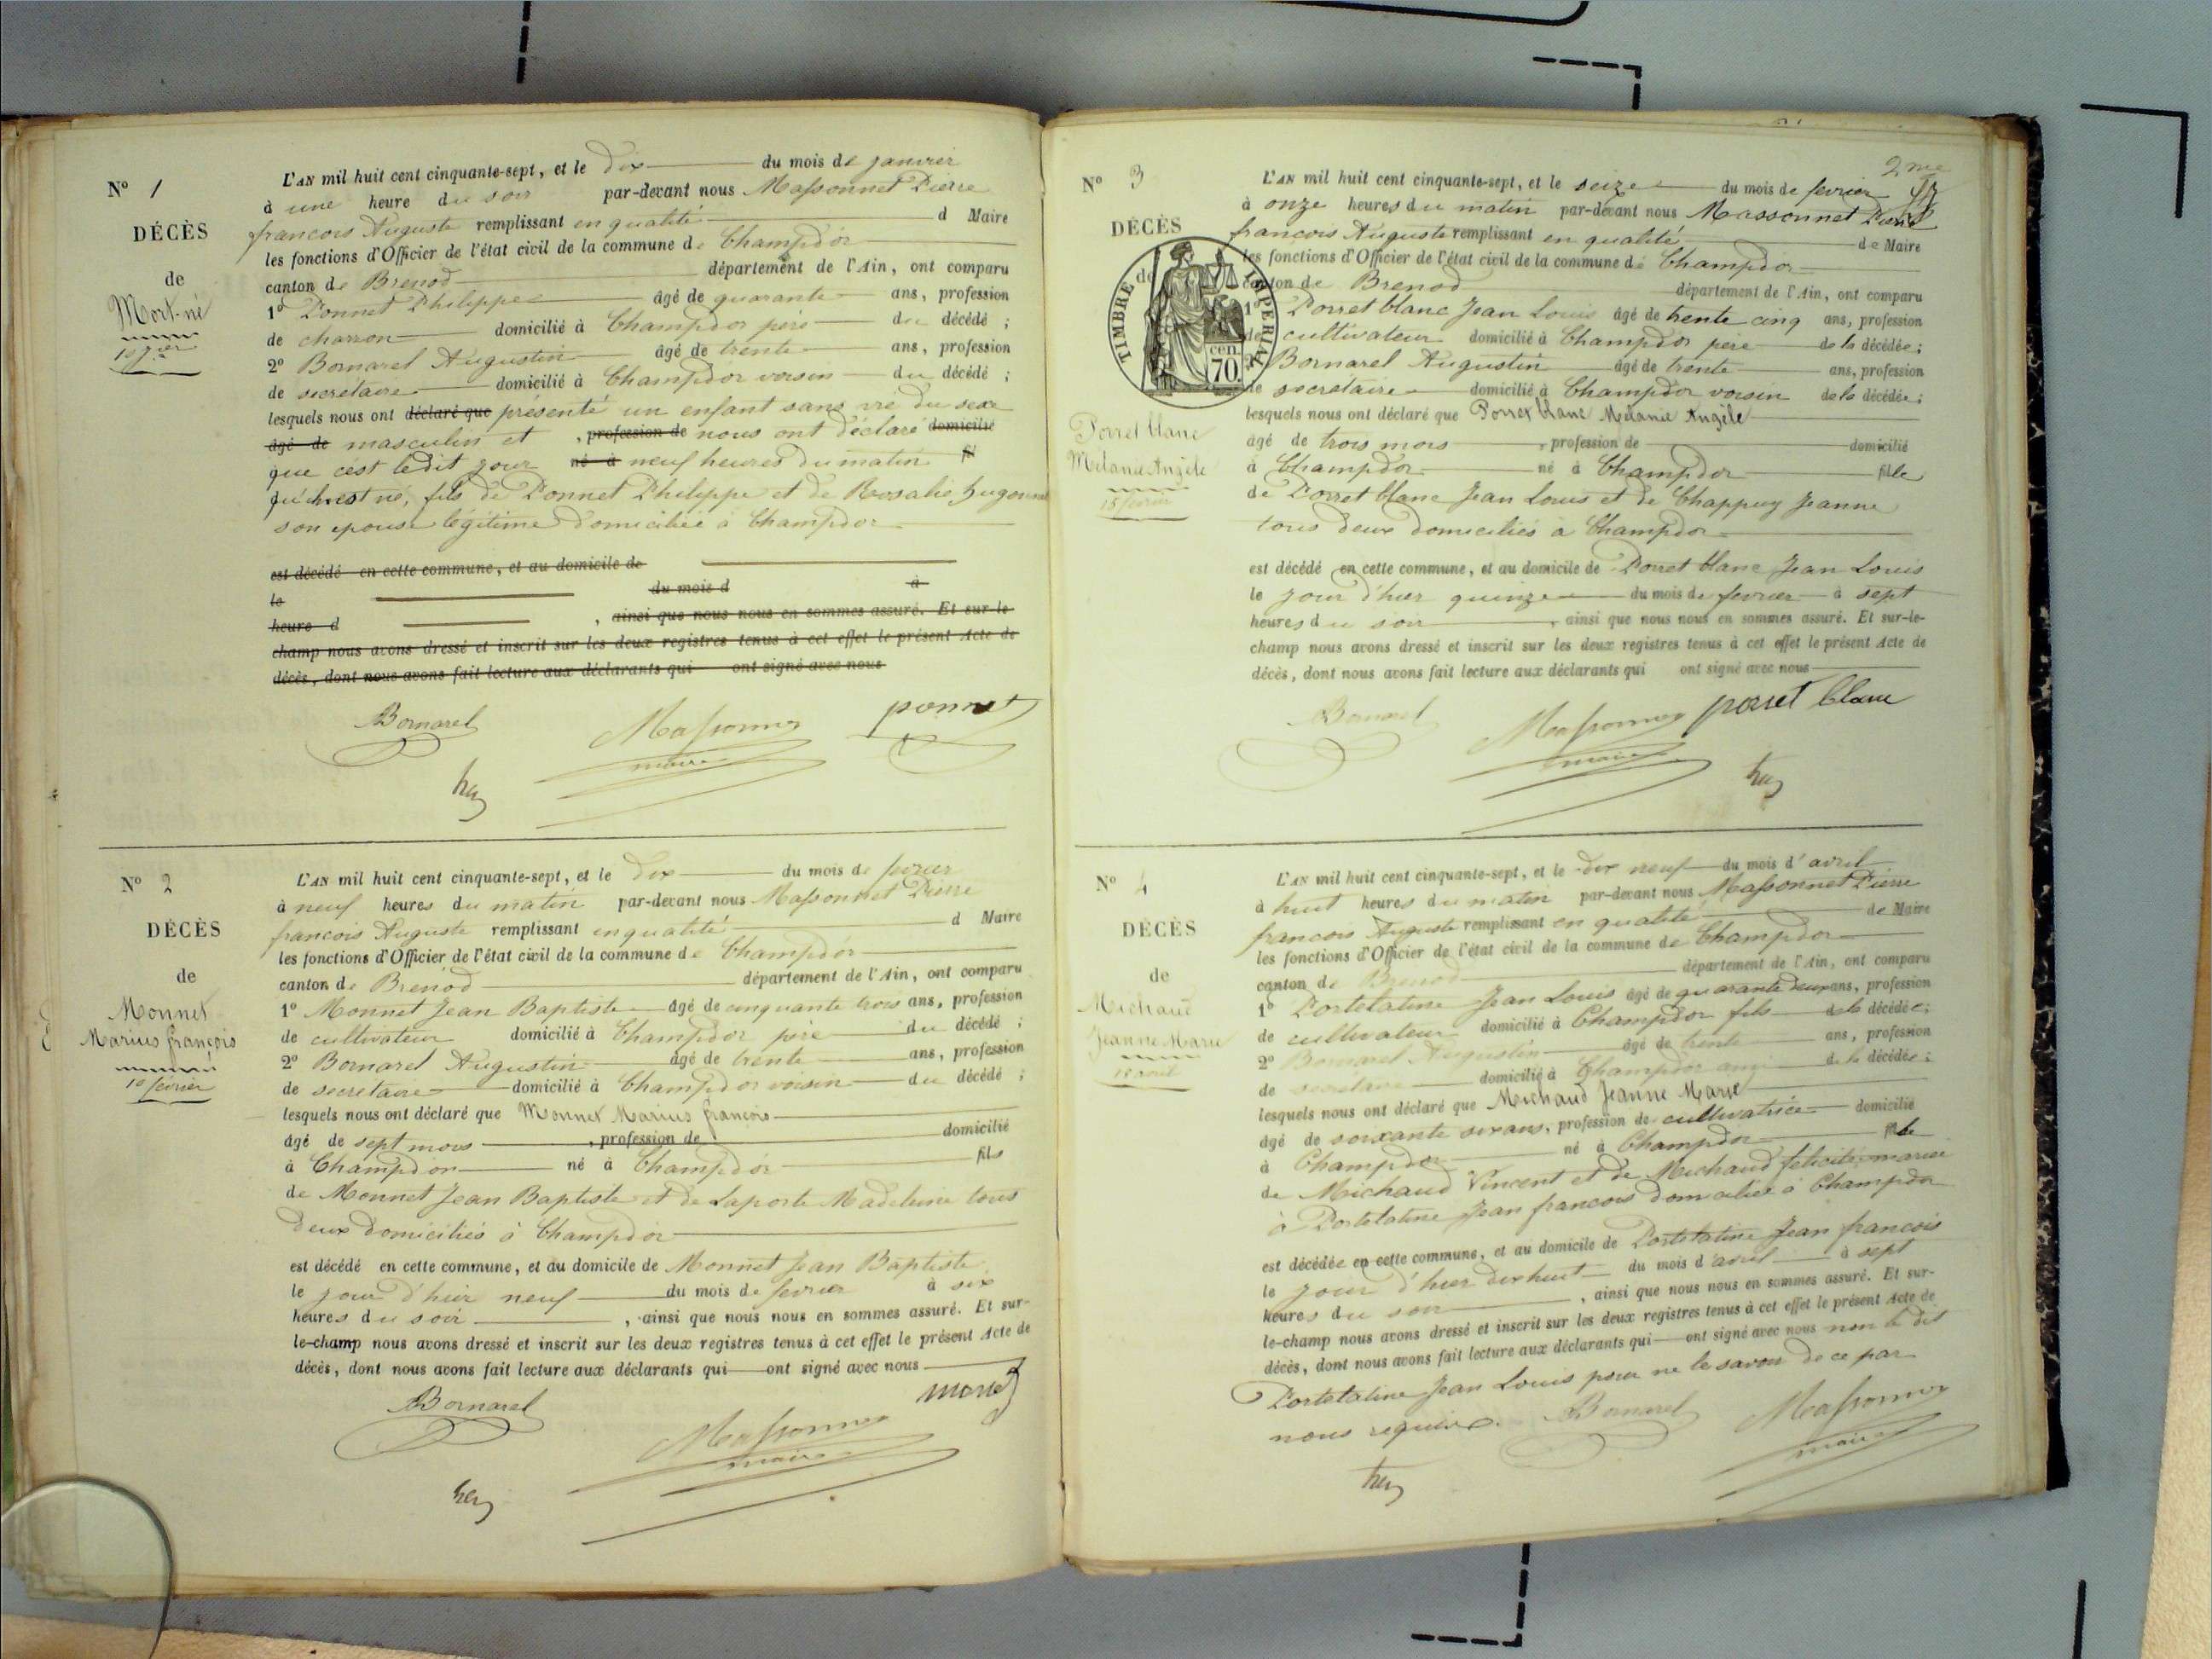 N° 1
DÉCÈS
de
Mort-né
10 Jer
L'AN mil huit cent cinquante-sept, et le dix du mois de janvier
à une heure du soir par-devant nous Massonnet Pierre
francois Auguste remplissant en qualité d Maire
les fonctions d'Officier de l'état civil de la commune de Champdor
canton de Brenod département de l'Ain, ont comparu
1° Ponnet Philippe âgé de quarante ans, profession
de charron domicilié à Champdor père du décédé ;
2° Bornarel Augustin âgé de trente ans, profession
de secretaire domicilié à Champdor voisin du décédé ;
lesquels nous ont déclaré que présenté un enfant sans vie du sexe
âgé de masculin et , profession de nous ont déclaré domicilié
que c'est ledit jour né à neuf heures du matin fil
qu'il est né, fils de Ponnet Philippe et de Rosalie
son epouse légitime domiciliée à Champdor
est décédé en cette commune, et au domicile de
le du mois d à
heure d , ainsi que nous nous en sommes assuré. Et sur-le
champ nous avons dressé et inscrit sur les deux registres tenus à cet effet le présent Acte de
décès, dont nous avons fait lecture aux déclarants qui ont signé avec nous
Bornarel Massonnet ponnet
maire
N° 2
DÉCÈS
de
Monnet
Marius françois
10 février
L'AN mil huit cent cinquante-sept, et le dix du mois de fevrier
à neuf heures du matin par-devant nous Massonnet Pierre
francois Auguste remplissant en qualité d Maire
les fonctions d'Officier de l'état civil de la commune de Champdor
canton de Brenod département de l'Ain, ont comparu
1° Monnet Jean Baptiste âgé de cinquante trois ans, profession
de cultivateur domicilié à Champdor père du décédé ;
2° Bornarel Augustin âgé de trente ans, profession
de secretaire domicilié à Champdor voisin du décédé ;
lesquels nous ont déclaré que Monnet Marius françois
âgé de sept mois , profession de domicilié
à Champdor né à Champdor fils
de Monnet Jean Baptiste et de Laporte Madeleine tous
deux domiciliés à Champdor
est décédé en cette commune, et au domicile de Monnet Jean Baptiste
le jour d'hier neuf du mois de fevrier à six
heures du soir , ainsi que nous nous en sommes assuré. Et sur-
le-champ nous avons dressé et inscrit sur les deux registres tenus à cet effet le présent Acte de
décès, dont nous avons fait lecture aux déclarants qui ont signé avec nous
Bornarel Massonnet monet
maire
2me
N° 3
DÉCÈS
de
TIMBRE IMPERIAL
70 cen
Porret blanc
Mélanie Angèle
15 février
L'AN mil huit cent cinquante-sept, et le seize du mois de fevrier
à onze heures du matin par-devant nous Massonnet Pierre
françois Auguste remplissant en qualité de Maire
les fonctions d'Officier de l'état civil de la commune de Champdor
canton de Brenod département de l'Ain, ont comparu
1° Porret blanc Jean Louis âgé de trente cinq ans, profession
de cultivateur domicilié à Champdor père de la décédée ;
2° Bornarel Augustin âgé de trente ans, profession
de secretaire domicilié à Champdor voisin de la décédée ;
lesquels nous ont déclaré que Porret blanc Mélanie Angèle
âgé de trois mois , profession de domicilié
à Champdor né à Champdor fille
de Porret blanc Jean Louis et de Chappuy Jeanne
tous deux domiciliés à Champdor
est décédé en cette commune, et au domicile de Porret blanc Jean Louis
le jour d'hier quinze du mois de fevrier à sept
heures du soir , ainsi que nous nous en sommes assuré. Et sur-le-
champ nous avons dressé et inscrit sur les deux registres tenus à cet effet le présent Acte de
décès, dont nous avons fait lecture aux déclarants qui ont signé avec nous
Bornarel Massonnet porret blanc
maire
N° 4
DÉCÈS
de
Michaud
Jeanne Marie
18 avril
L'AN mil huit cent cinquante-sept, et le dix neuf du mois d'avril
à huit heures du matin par-devant nous Massonnet Pierre
francois Auguste remplissant en qualité de Maire
les fonctions d'Officier de l'état civil de la commune de Champdor
canton de Brenod département de l'Ain, ont comparu
1° Portelatine Jean Louis âgé de quarante deux ans, profession
de cultivateur domicilié à Champdor fils de la décédée ;
2° Bornarel Augustin âgé de trente ans, profession
de secretaire domicilié à Champdor ami de la décédée ;
lesquels nous ont déclaré que Michaud Jeanne Marie
âgé de soixante six ans, profession de cultivatrice domicilié
à Champdor né à Champdor fille
de Michaud Vincent et de Michaud felicité mariée
à Portelatine Jean francois domiciliée à Champdor
est décédée en cette commune, et au domicile de Portelatine Jean francois
le jour d'hier dix huit du mois d'avril à sept
heures du soir , ainsi que nous nous en sommes assuré. Et sur-
le-champ nous avons dressé et inscrit sur les deux registres tenus à cet effet le présent Acte de
décès, dont nous avons fait lecture aux déclarants qui ont signé avec nous non le dit
Portelatine Jean Louis pour ne le savoir de ce par
nous requis. Bornarel Massonnet
maire